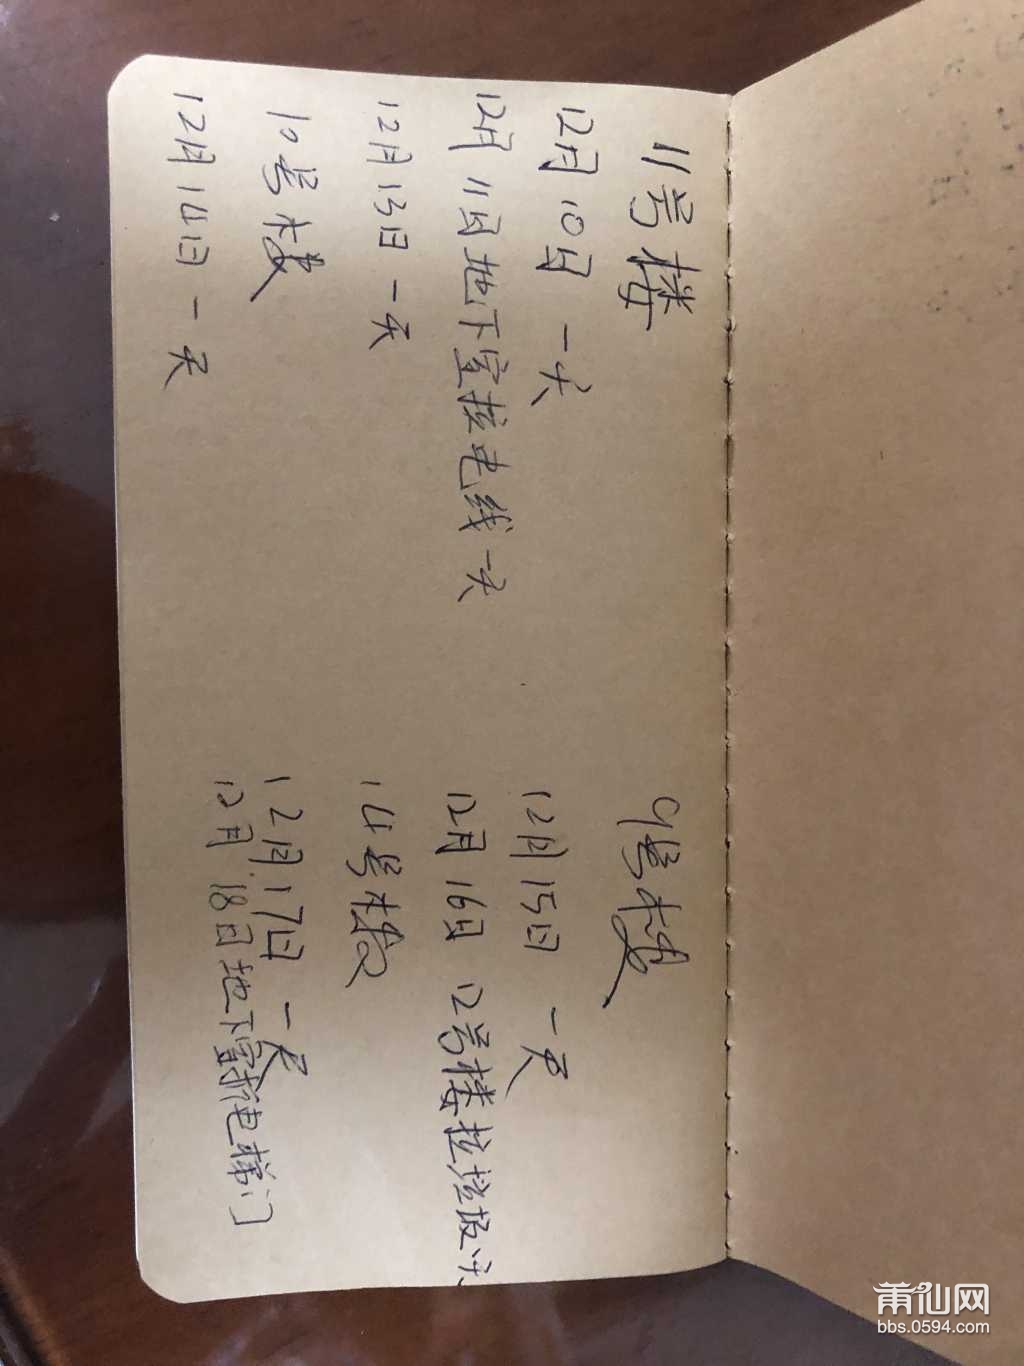 11号楼
12月10日 一天
12月11日地下室接电线一天
12月13日一天
10号楼
12月14日一天
9号楼
12月15日 一天
12月16日 12号楼拉垃圾
14号楼
12月17日 一天
12月18日地下室拆电梯门
莆仙网
bbs.0594.com